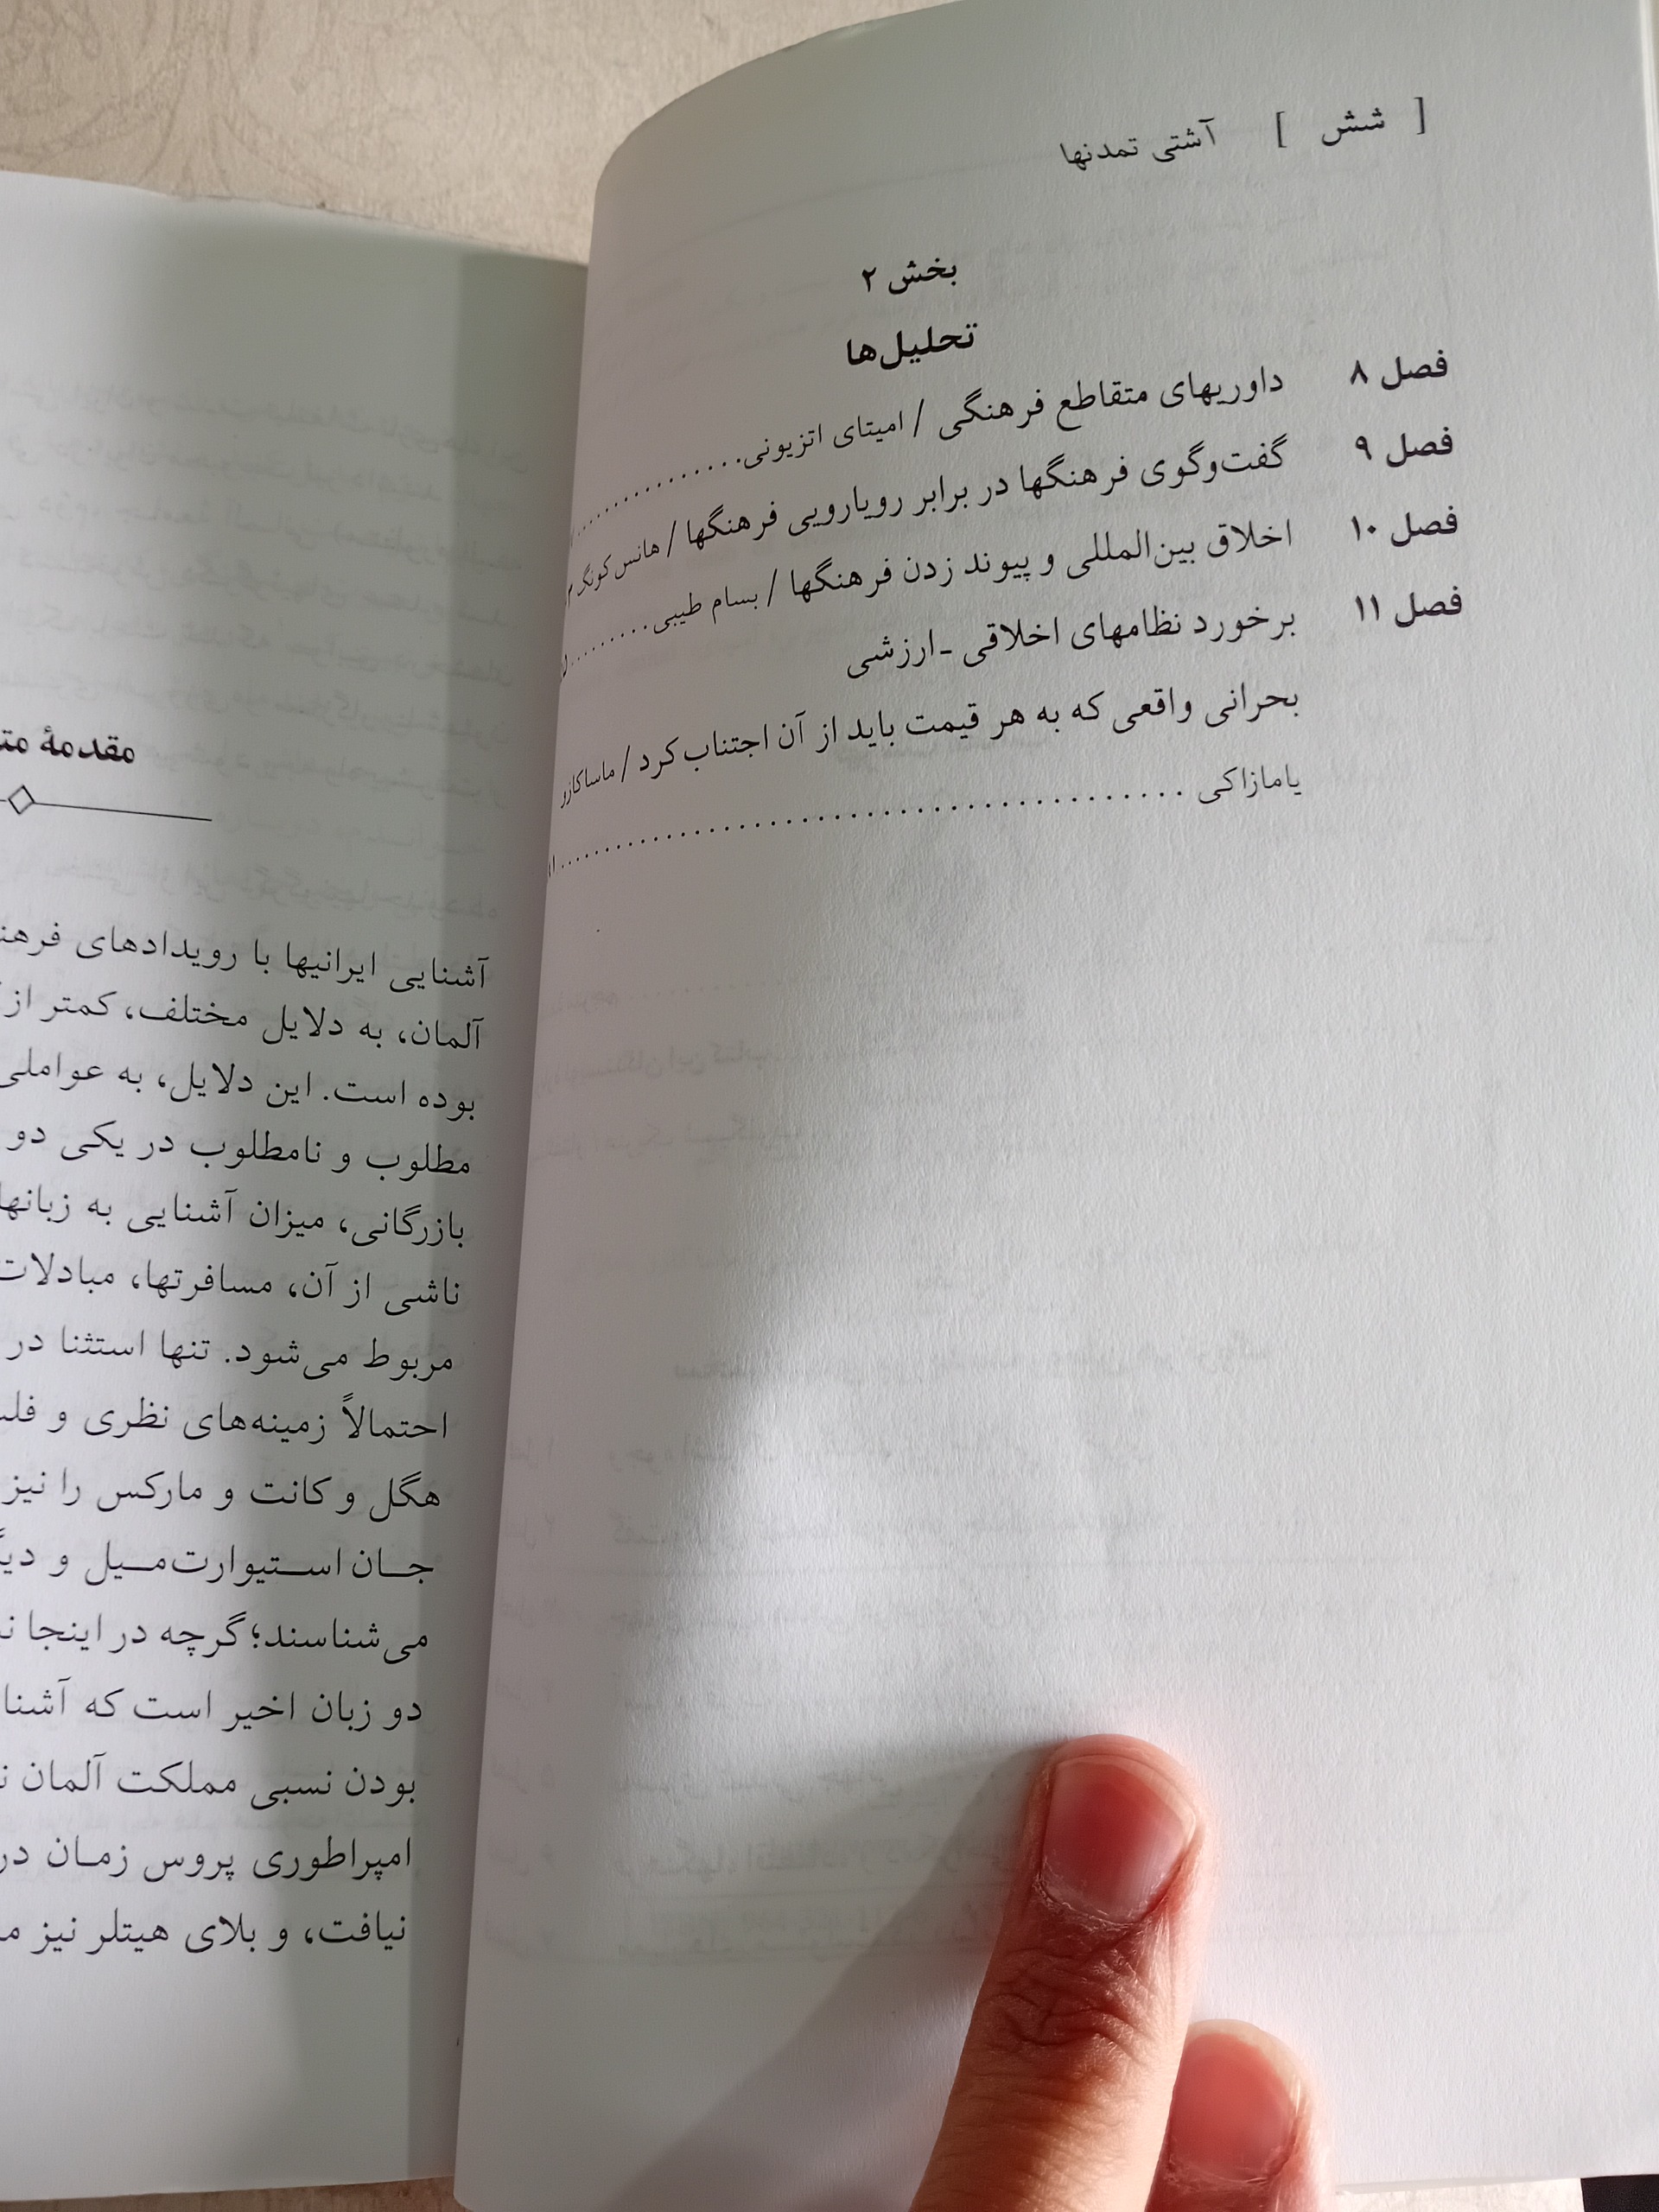 [ شش ] آشتی تمدنها
بخش ۲
تحلیل‌ها
فصل ۸ داوریهای متقاطع فرهنگی / امیتای اتزیونی
فصل ۹ گفت‌وگوی فرهنگها در برابر رویارویی فرهنگها / هانس کونگ
فصل ۱۰ اخلاق بین‌المللی و پیوند زدن فرهنگها / بسام طیبی
فصل ۱۱ برخورد نظامهای اخلاقی ـ ارزشی
بحرانی واقعی که به هر قیمت باید از آن اجتناب کرد / ماساکازو
یامازاکی
مقدمهٔ
آشنایی ایرانیها با رویدادهای
آلمان، به دلایل مختلف، کمتر از
بوده است. این دلایل، به عواملی
مطلوب و نامطلوب در یکی دو
بازرگانی، میزان آشنایی به
ناشی از آن، مسافرتها، مبادلات
مربوط می‌شود. تنها استثنا در
احتمالاً زمینه‌های نظری و
هگل و کانت و مارکس را نیز
جان استیوارت میل و
می‌شناسند؛ گرچه در اینجا
دو زبان اخیر است که
بودن نسبی مملکت آلمان
امپراطوری پروس زمان در
نیافت، و بلای هیتلر نیز